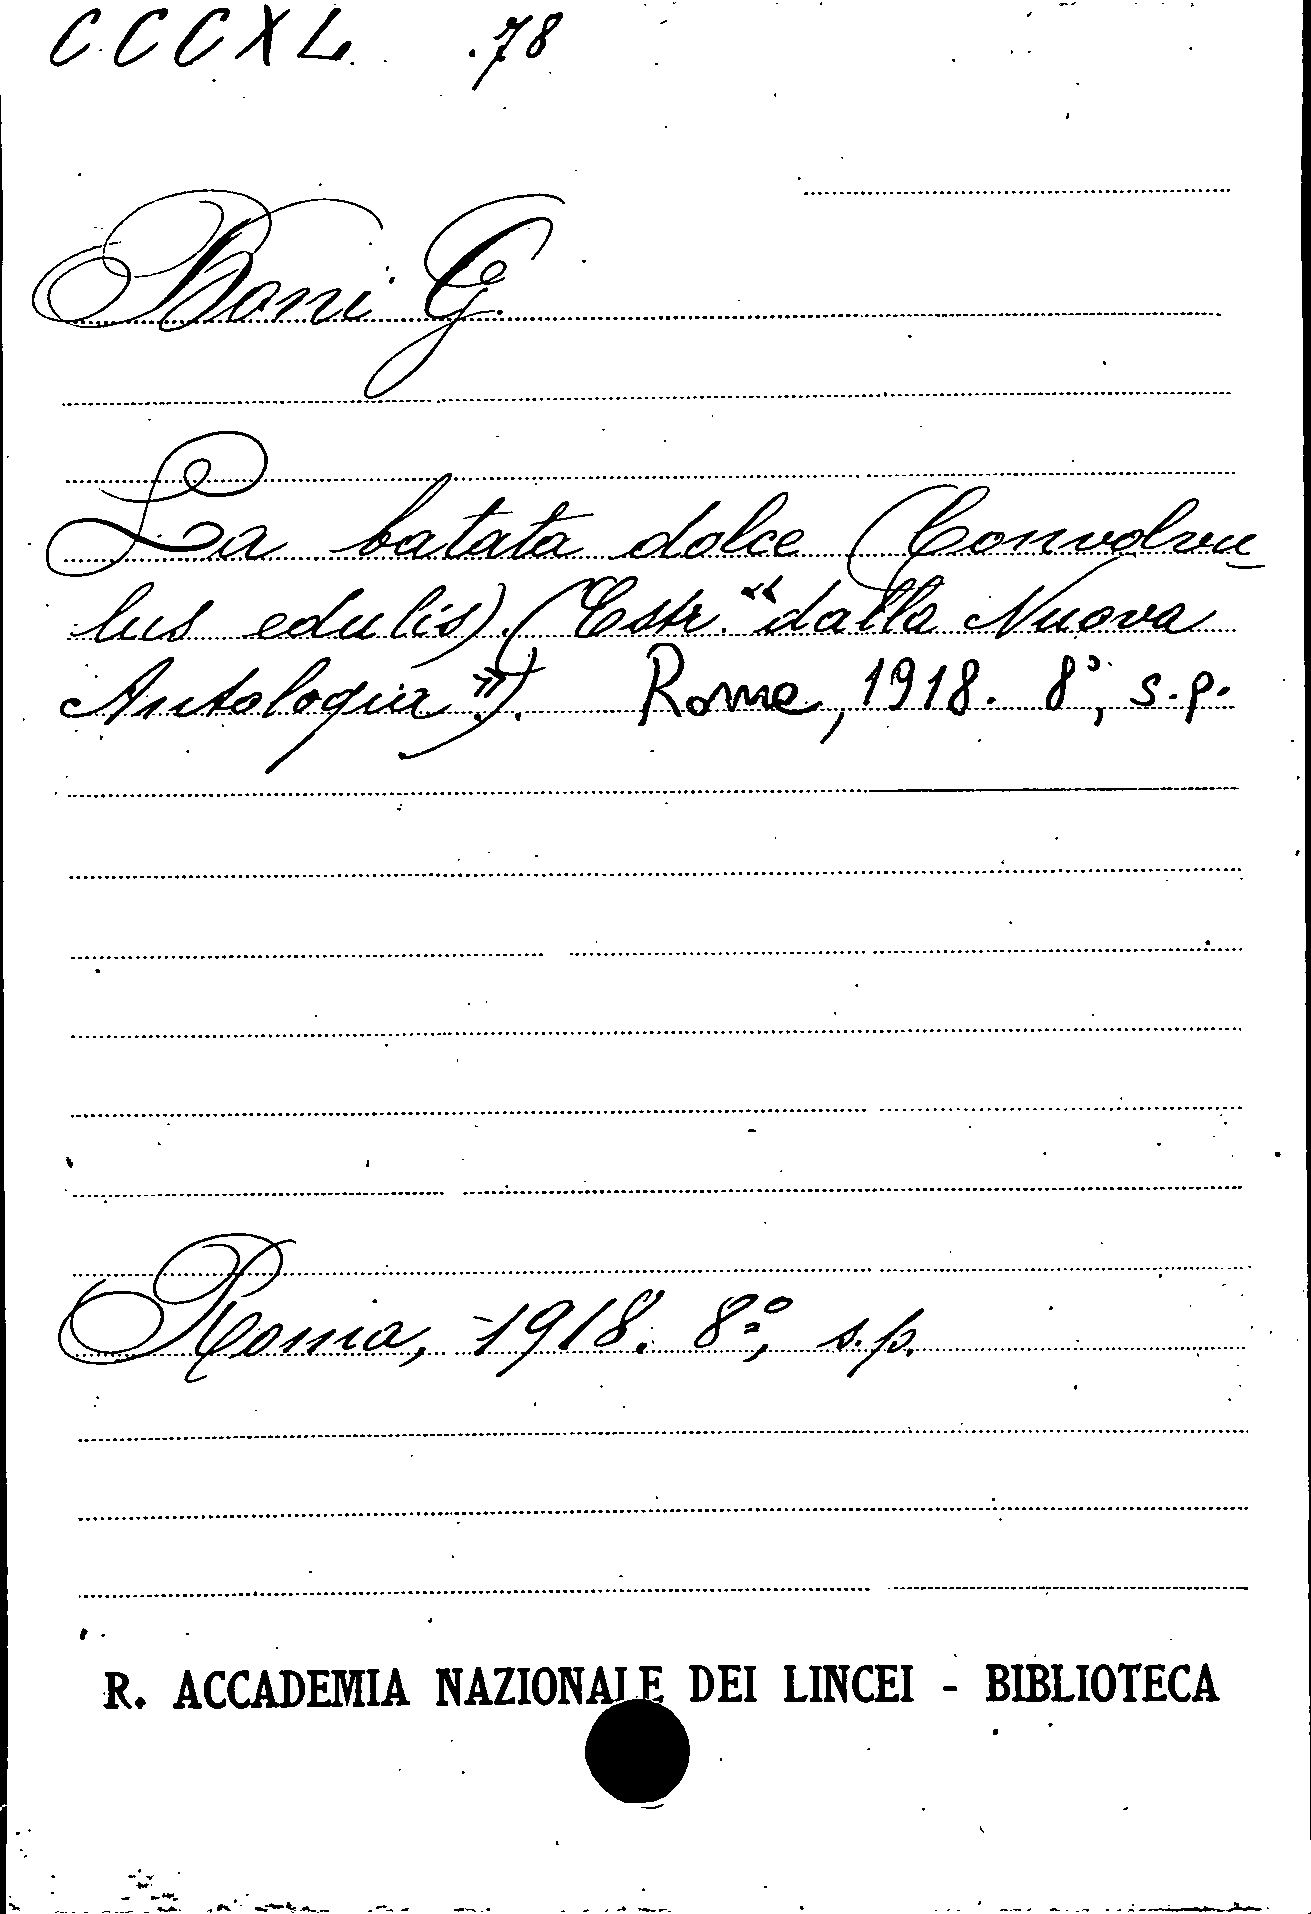 CCCXL .78
Boni G.
La batata dolce (Convolvu-
lus edulis). (Estr. "dalla Nuova
Antologia"). Roma, 1918. 8°, s.p.
Roma, 1918. 8°, s.p.
R. ACCADEMIA NAZIONALE DEI LINCEI - BIBLIOTECA